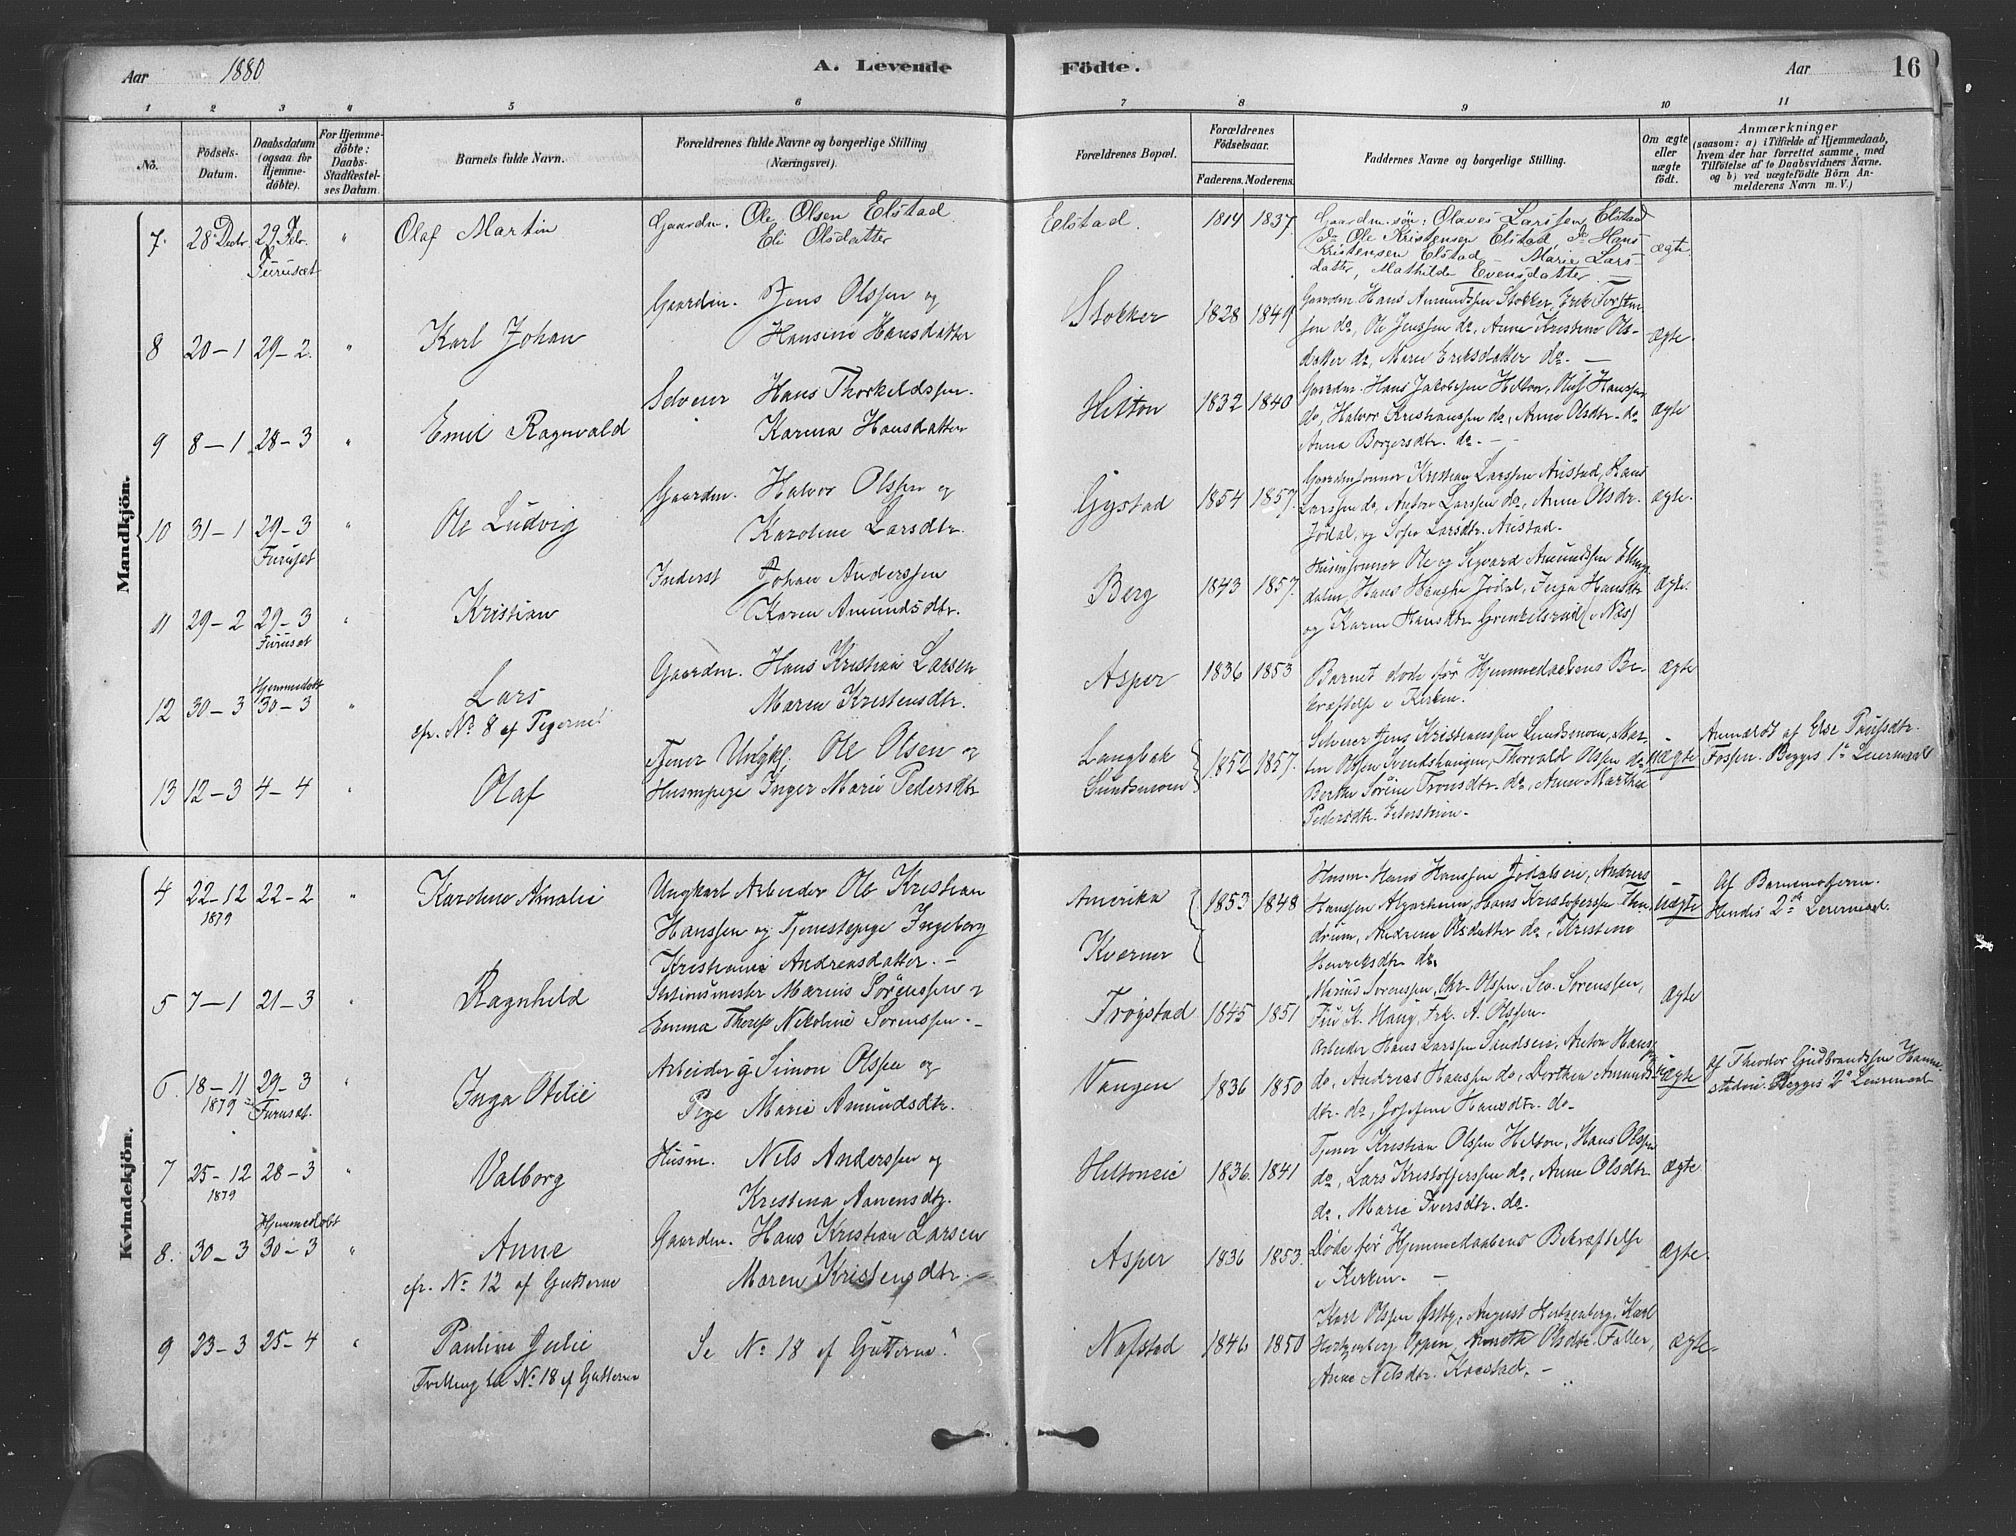 Aar 1880 A. Levende Födte. Aar 16
1 2 3 4 5 6 7 8 9 10 11
No. Födsels-Datum. Daabsdatum (ogsaa for Hjemmedöbte). For Hjemmedöbte: Daabs-Stadfæstelses Datum. Barnets fulde Navn. Forældrenes fulde Navne og borgerlige Stilling (Næringsvei). Forældrenes Bopæl. Forældrenes Födselsaar. Faderens. Moderens. Faddernes Navne og borgerlige Stilling. Om ægte eller uægte födt. Anmærkninger (saasom: a) i Tilfælde af Hjemmedaab, hvem der har forrettet samme, med Tilföielse af to Daabsvidners Navne. og b) ved uægtefödte Börn Anmelderens Navn m. V.)
Mandkjön.
7. 28 Decbr. 29 Febr. Furuset " Olaf Martin
Gaardm. Ole Olsen Elstad
Eli Olsdatter
Elstad 1814 1837
Gaardm. søn: Olaves Larssen Elstad
do Ole Kristensen Elstad, do Hans
Kristensen Elstad — Marie Lars-
datter, Mathilde Evensdatter —
ægte
8 20-1 29-2. " Karl Johan
Gaardm. Jens Olssen og
Hansine Hansdatter
Stokker 1828 1849
Gaardm. Hans Amundssen Stokker, Erik Torsten
sen do, Ole Jenssen do, Anne Kristine Ols-
datter do, Maren Eriksdatter do. —
ægte.
9 8-1 28-3 " Emil Ragnvald
Selveier Hans Thorkeldssen.
Karina Hansdatter
Helton 1832 1840
Gaardm. Hans Jakobssen Helton, Oluf Hanssen
do, Halvor Kristianssen do, Anne Olsdtr. do
Anna Borgersdtr. do. —
ægte
10 31-1 29-3 Furuset " Ole Ludvig
Gaardm. Halvor Olssen og
Karoline Larsdtr.
Gystad 1854 1857.
Gaardmsønner Kristian Larssen Aristad, Hans
Larssen do, Anton Larssen do, Anne Olsdtr.
Jødal, og Sofie Larsdtr. Aristad.
ægte.
11 29-2 29-3 Furuset " Kristian
Inderst Johan Anderssen
Karen Amundsdtr.
Berg 1843 1857.
Husmsønner Ole og Sigvard Amundssen
Hans Jødal, Inga Hansdtr
og Karen Hansdtr. (Næs)
ægte.
12 30-3 Hjemmedøbt 30-3 " Lars
cfr. No 8 af Pigerne
Gaardm. Hans Kristian Larsen
Maren Kristensdtr.
Asper 1836 1853
Barnet døde før Hjemmedaabens Be-
kræftelse i Kirken.
ægte
13 12-3 4-4 " Olaf
Tjener Ungkl. Ole Olsen &
Husmpige Inger Marie Pedersdtr
Langbak
Lundsmoen
1852 1857.
Selveier Jens Kristianssen Lundsmoen, Mar-
tin Olssen Svendshaugen, Thorvald Olssen do
Berthe Sørine Tronsdtr. do, Anne Marthea
Pedersdtr.
uægte
Anmeldt af Else Paulsdtr.
Fossen. Begges 1ste Leiermaal
Kvindekjön.
4 22-12 1879 22-2 " Karoline Amalie
Ungkarl Arbeider Ole Kristian
Hanssen og Tjenestepige Ingeborg
Kristiane Andreasdatter. —
Amerika
Kverner
1853 1848
Husm. Hans Hanssen Jødalseie, Andreas
Hanssen Algarheim, Hans Kristoferssen Thu-
drum, Andrine Olsdatter do, Kristine
Henriksdtr do.
Uægte
Af Barnemoderen.
Hendes 2det Leiermaal.
5 7-1 21-3 " Ragnhild
Stationsmester Marius Sørenssen &
Emma Therese Nikoline Sørenssen. —
Trøgstad 1845 1851
Marius Sørenssen, Chr. Olssen, Sev. Sørenssen,
Fru K. Haug, Frk. A. Olssen.
ægte
6. 18-11 1879 29-3 Furuset. " Inga Otilie
Arbeider g Simon Olssen og
Pige Marie Amundsdtr.
Vangen 1836 1850
Arbeider Hans Larssen Sandseie, Anton Hans
do, Andreas Hanssen do, Dorthea Amunds
dtr. do, Josefine Hansdtr. do.
uægte
Af Theodor Gudbrandssen Hanne-
stadeie. Begges 2det Leiermaal
7 25-12 1879 28-3 " Valborg
Husm. Nils Anderssen og
Kristina Aanensdtr.
Heltoneie 1836. 1841
Tjener Kristian Olssen Helton, Hans Olssen
do, Lars Kristofferssen do, Anne Olsdtr.
do, Marie Iversdtr. do.
ægte
8. 30-3 Hjemmedøbt 30-3 " Anne
cfr. No 12 af Gutterne
Gaardm. Hans Kristian Larsen
Maren Kristensdtr.
Asper 1836 1853.
Døde før Hjemmedaabens Bekræftelse
i Kirken. —
ægte.
9 23-3 25-4 " Pauline Julie
Tvilling til No 18 af Gutterne
Se No 18 af Gutterne.
Nafstad 1846 1850
Karl Olssen Østby, August Hertzenberg, Karl
Hertzenberg Oppen, Annette Olsdtr. Faller,
Anne Nilsdtr. —
ægte.